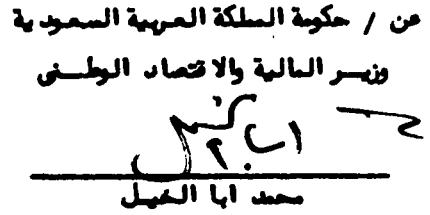 عن / حكومة المملكة العربية السعودية
وزيــر المالية والاقتصاد الوطــنى
محمد ابا الخيــل